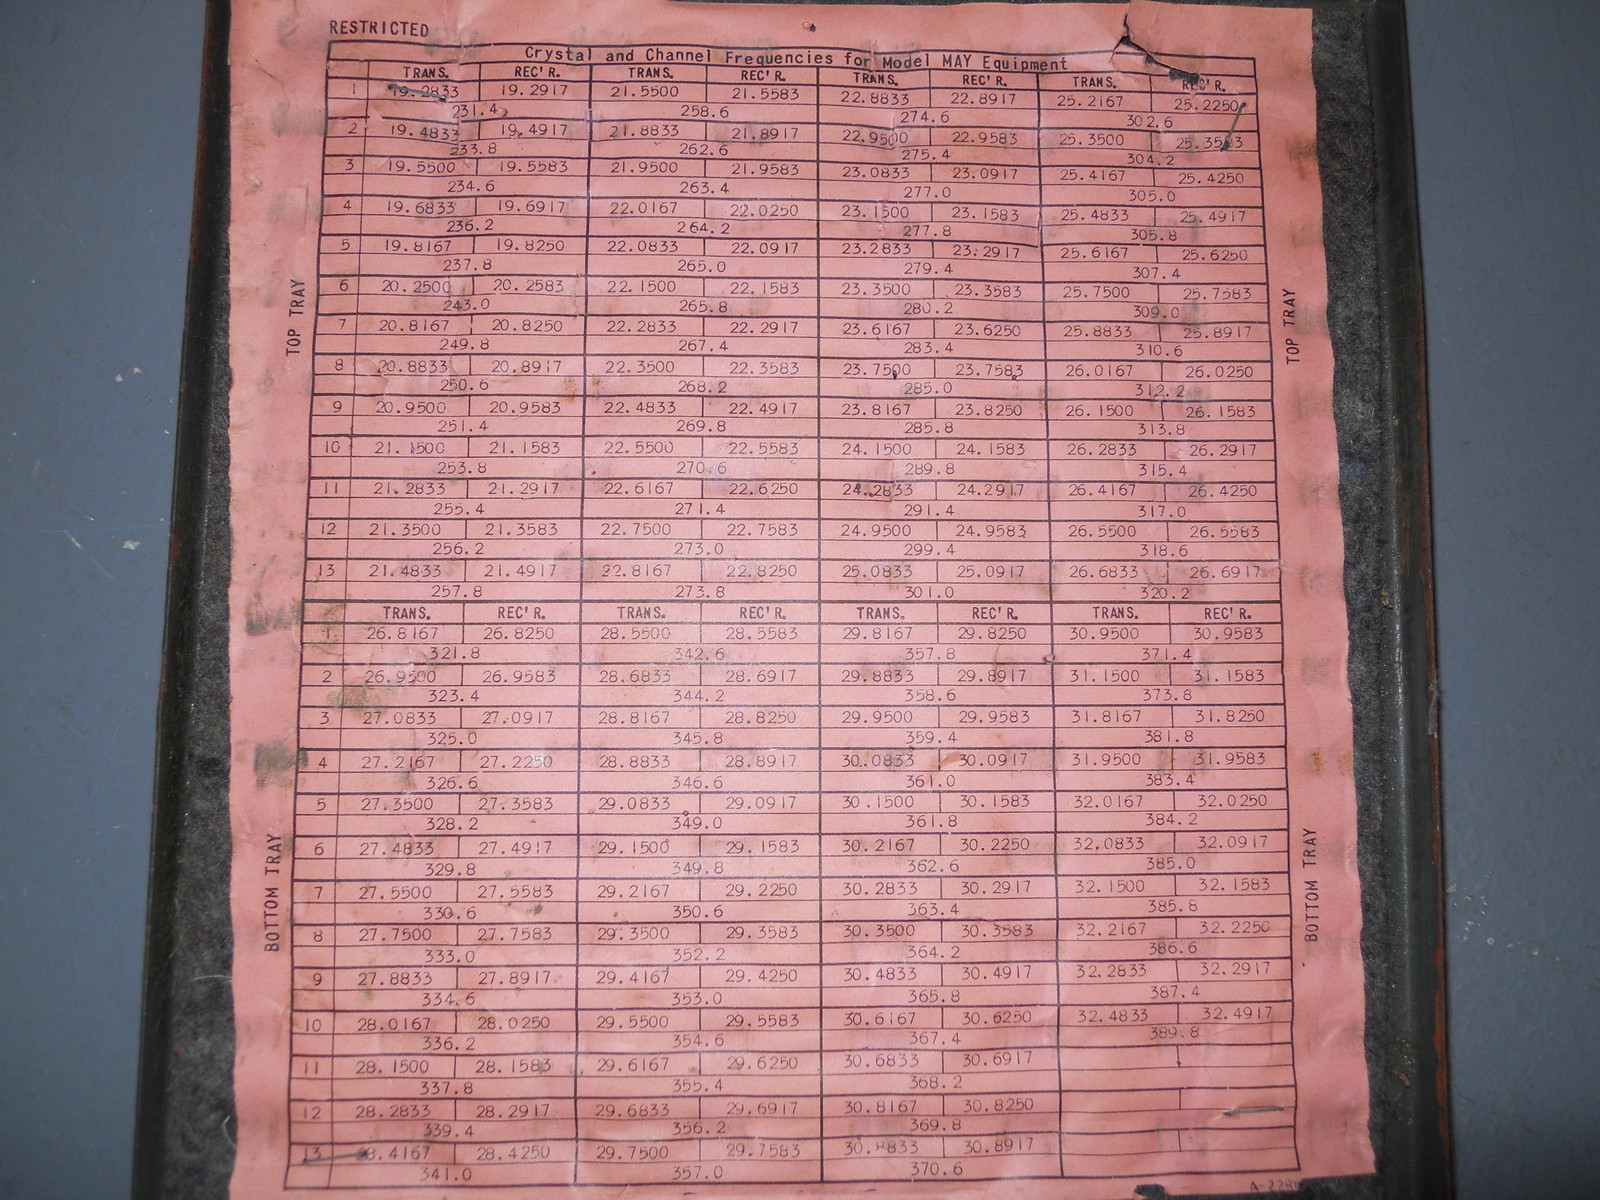 RESTRICTED
Crystal and Channel Frequencies for Model MAY Equipment
TRANS. REC'R. TRANS. REC'R. TRANS. REC'R. TRANS. REC'R.
1 19.2833 19.2917 21.5500 21.5583 22.8833 22.8917 25.2167 25.2250
231.4 258.6 274.6 302.6
2 19.4833 19.4917 21.8833 21.8917 22.9500 22.9583 25.3500 25.3583
233.8 262.6 275.4 304.2
3 19.5500 19.5583 21.9500 21.9583 23.0833 23.0917 25.4167 25.4250
234.6 263.4 277.0 305.0
4 19.6833 19.6917 22.0167 22.0250 23.1500 23.1583 25.4833 25.4917
236.2 264.2 277.8 305.8
5 19.8167 19.8250 22.0833 22.0917 23.2833 23.2917 25.6167 25.6250
237.8 265.0 279.4 307.4
6 20.2500 20.2583 22.1500 22.1583 23.3500 23.3583 25.7500 25.7583
243.0 265.8 280.2 309.0
7 20.8167 20.8250 22.2833 22.2917 23.6167 23.6250 25.8833 25.8917
249.8 267.4 283.4 310.6
8 20.8833 20.8917 22.3500 22.3583 23.7500 23.7583 26.0167 26.0250
250.6 268.2 285.0 312.2
9 20.9500 20.9583 22.4833 22.4917 23.8167 23.8250 26.1500 26.1583
251.4 269.8 285.8 313.8
10 21.1500 21.1583 22.5500 22.5583 24.1500 24.1583 26.2833 26.2917
253.8 270.6 289.8 315.4
11 21.2833 21.2917 22.6167 22.6250 24.2833 24.2917 26.4167 26.4250
255.4 271.4 291.4 317.0
12 21.3500 21.3583 22.7500 22.7583 24.9500 24.9583 26.5500 26.5583
256.2 273.0 299.4 318.6
13 21.4833 21.4917 22.8167 22.8250 25.0833 25.0917 26.6833 26.6917
257.8 273.8 301.0 320.2
TOP TRAY
TOP TRAY
TRANS. REC'R. TRANS. REC'R. TRANS. REC'R. TRANS. REC'R.
1 26.8167 26.8250 28.5500 28.5583 29.8167 29.8250 30.9500 30.9583
321.8 342.6 357.8 371.4
2 26.9500 26.9583 28.6833 28.6917 29.8833 29.8917 31.1500 31.1583
323.4 344.2 358.6 373.8
3 27.0833 27.0917 28.8167 28.8250 29.9500 29.9583 31.8167 31.8250
325.0 345.8 359.4 381.8
4 27.2167 27.2250 28.8833 28.8917 30.0833 30.0917 31.9500 31.9583
326.6 346.6 361.0 383.4
5 27.3500 27.3583 29.0833 29.0917 30.1500 30.1583 32.0167 32.0250
328.2 349.0 361.8 384.2
6 27.4833 27.4917 29.1500 29.1583 30.2167 30.2250 32.0833 32.0917
329.8 349.8 362.6 385.0
7 27.5500 27.5583 29.2167 29.2250 30.2833 30.2917 32.1500 32.1583
330.6 350.6 363.4 385.8
8 27.7500 27.7583 29.3500 29.3583 30.3500 30.3583 32.2167 32.2250
333.0 352.2 364.2 386.6
9 27.8833 27.8917 29.4167 29.4250 30.4833 30.4917 32.2833 32.2917
334.6 353.0 365.8 387.4
10 28.0167 28.0250 29.5500 29.5583 30.6167 30.6250 32.4833 32.4917
336.2 354.6 367.4 389.8
11 28.1500 28.1583 29.6167 29.6250 30.6833 30.6917
337.8 355.4 368.2
12 28.2833 28.2917 29.6833 29.6917 30.8167 30.8250
339.4 356.2 369.8
13 28.4167 28.4250 29.7500 29.7583 30.8833 30.8917
341.0 357.0 370.6
BOTTOM TRAY
BOTTOM TRAY